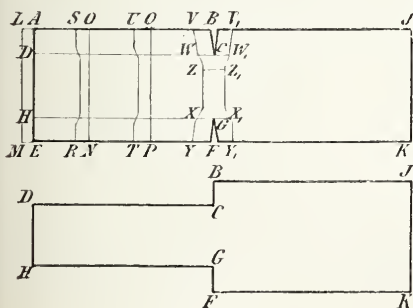 L A S O U O V B V₁ J
D W C W₁
Z Z₁
H X G X₁
M E R N T P Y F Y₁ K
B J
D C
H G
F K